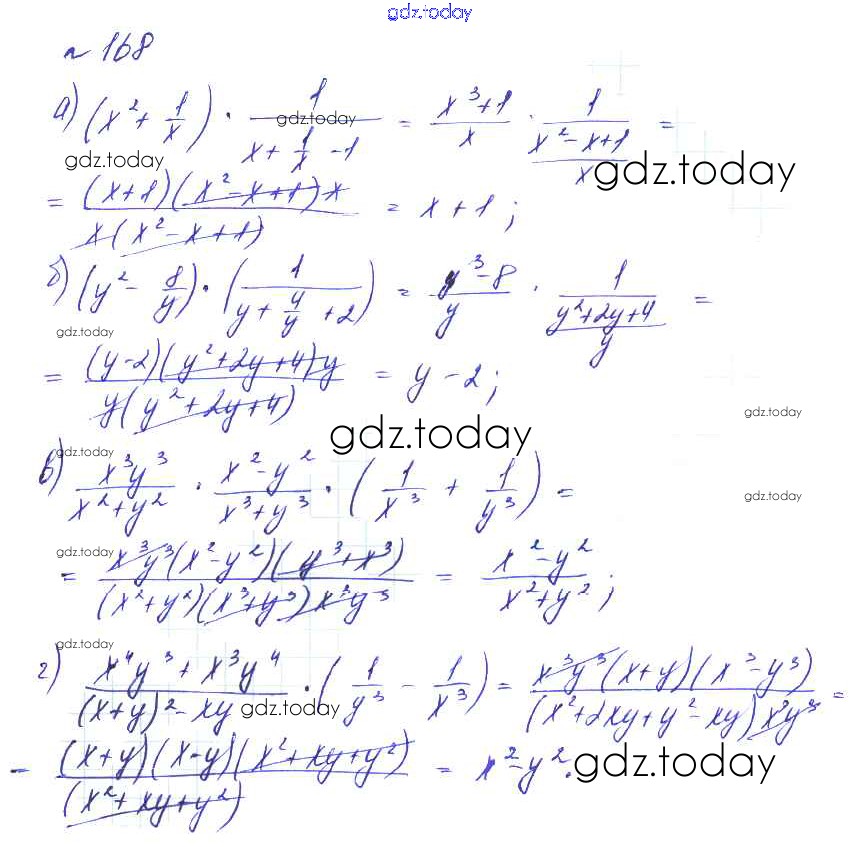 gdz.today
№ 168
а) (x² + 1/x) · 1/(x + 1/x - 1) = (x³+1)/x · 1/((x²-x+1)/x) =
gdz.today
gdz.today
gdz.today
= (x+1)(x²-x+1)x / x(x²-x+1) = x+1;
б) (y² - 8/y) · (1/(y + 4/y + 2)) = (y³-8)/y · 1/((y²+2y+4)/y) =
gdz.today
= (y-2)(y²+2y+4)y / y(y²+2y+4) = y-2;
gdz.today
gdz.today
gdz.today
в) x³y³/(x²+y²) · (x²-y²)/(x³+y³) · (1/x³ + 1/y³) =
gdz.today
gdz.today
= x³y³(x²-y²)(y³+x³) / (x²+y²)(x³+y³)x³y³ = (x²-y²)/(x²+y²);
gdz.today
г) (x⁴y³+x³y⁴)/((x+y)²-xy) · (1/y³ - 1/x³) = x³y³(x+y)(x³-y³) / (x²+2xy+y²-xy)x³y³ =
gdz.today
= (x+y)(x-y)(x²+xy+y²) / (x²+xy+y²) = x²-y².
gdz.today